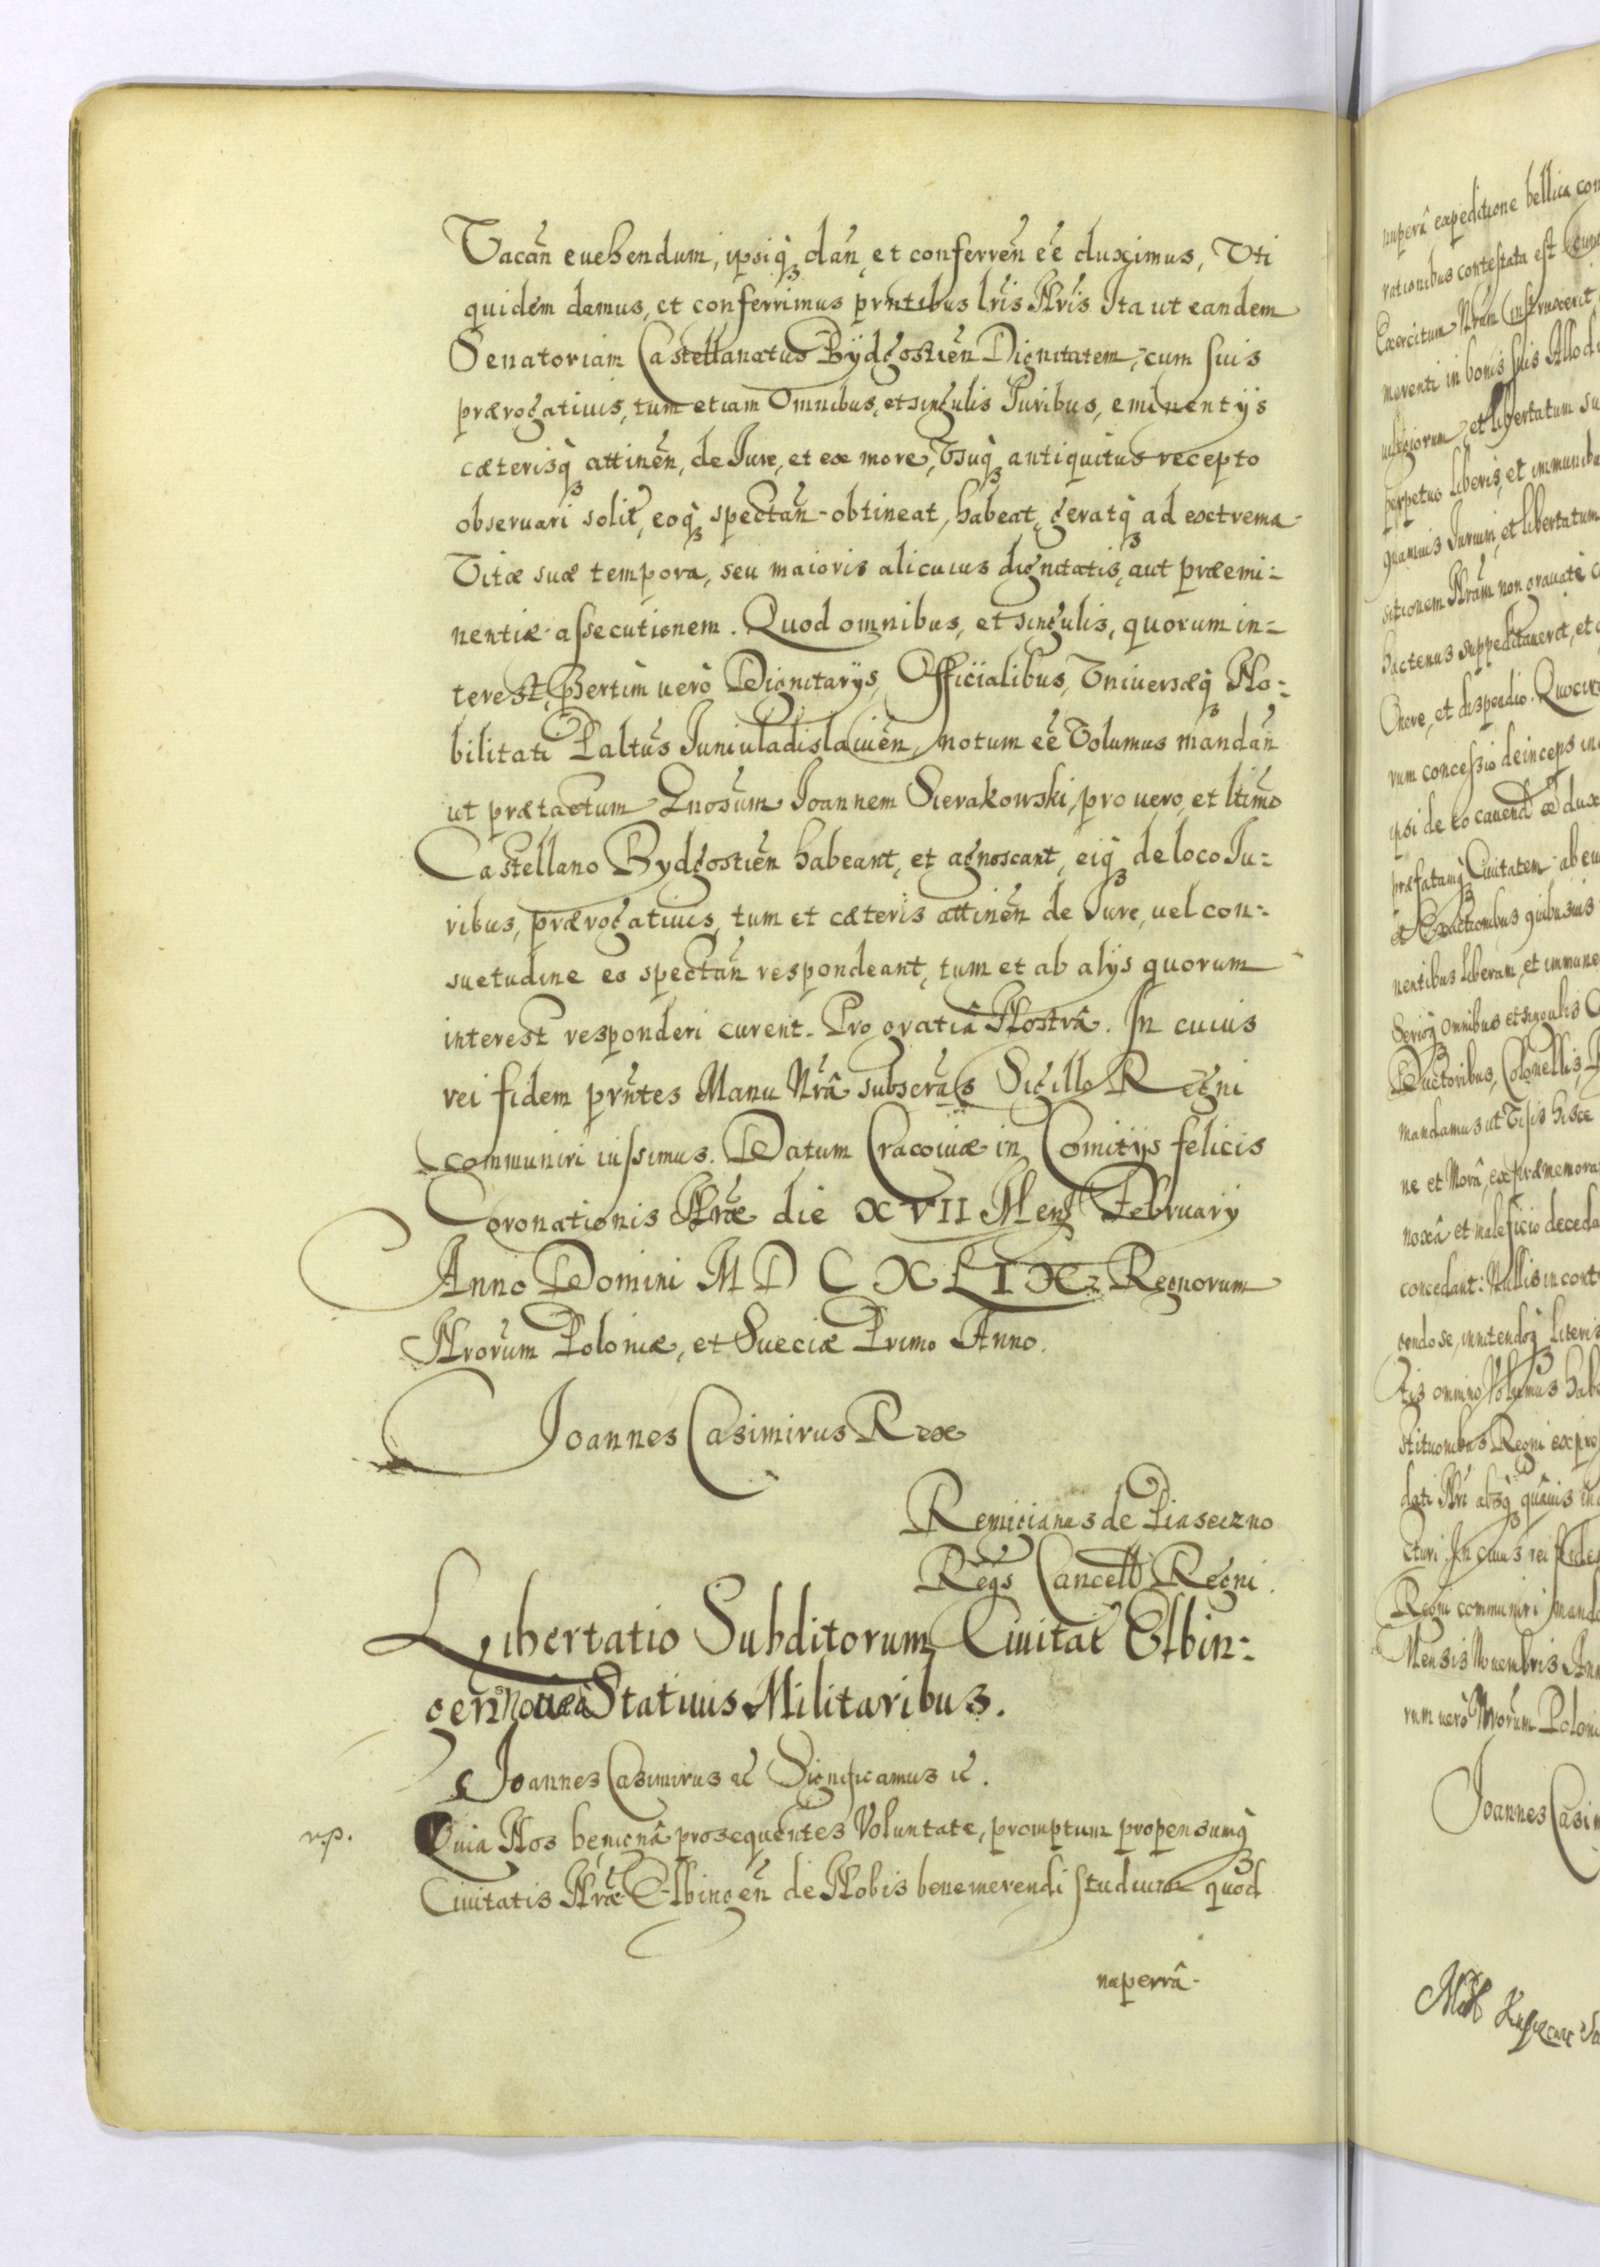 Vacan̄ euehendum, ipsiq̃ dan̄, et conferren̄ eẽ duximus, Vti
quidem damus, et conferrimus prñtibus lr̃is Nr̃is Ita ut eandem
Senatoriam Castellanatus Bÿdgostien̄ Dignitatem, cum suis
prærogatiuis, tum etiam Omnibus, et singulis Iuribus, eminentijs
cæterisq̃ attinen̄, de Iure, et ex more, Vsuq̃ antiquitus recepto
obseruari solit̃, eoq̃ spectan̄ obtineat, habeat, geratq̃ ad extrema
Vitæ suæ tempora, seu maioris alicuius dignitatis, aut præemi:
nentiæ assecutionem. Quod omnibus, et singulis, quorum in:
terest, p̃sertim uerò Dignitarijs, Officialibus, Vniuersæq̃ No:
bilitati Pal̃tus Iuniuladislauien̄ notum eẽ Volumus mandan̄
ut prætactum Gnosum Joannem Sierakowski, pro uero, et ltimo
Castellano Bydgostien̄ habeant, et agnoscant, eiq̃ de loco Iu:
ribus, prærogatiuis, tum et cæteris attinen̄ de Iure, uel con:
suetudine eo spectan̄ respondeant, tum et ab alijs quorum
interest responderi curent. Pro gratiâ Nostrâ. In cuius
rei fidem prñtes Manu Nr̃â subscr̃as Sigillo Regni
communiri iussimus. Datum Cracouiæ in Comitijs felicis
Coronationis Nr̃æ die XVII Mens̃ February
Anno Domini M D C XLIX Regnorum
Nr̃orum Poloniæ, et Sueciæ Primo Anno.
Joannes Casimirus Rex
Remigianus de Piaseczno
Regs Cancell Regni.
Libertatio Subditorum Ciuitat̃ Elbin:
gen̄ Statiuis Militaribus.
Joannes Casimirus etc̃ Significamus etc̃.
v.p.
Quia Nos benignâ prosequentes Voluntate, promptum propensumq̃
Ciuitatis Nr̃æ Elbingen̄ de Nobis benemerendi studium quod
naperrâ.
nuperâ expeditione bellica con
rationibus contestata est
Exercitum Nr̃um instruxerit
merenti in bonis suis Allodi
uilegiorum, et libertatum su
perpetuo liberis, et immunibu
quamuis Iurium, et libertatum
sitionem Nr̃am non grauatè c
hactenus suppeditauerit, et
Onere, et dispendio. Quocirc
rum concessio deinceps in
ipsi de eo cauend eẽ dux
præfatamq̃ Ciuitatem ab eiu
et Exactionibus quibusuis
nentibus liberam, et immune
Serioq̃ omnibus et singulis
Ductoribus, Colonellis,
mandamus ut Visis hisce
ne et Morâ, ex præmemora
noxâ et maleficio deceda
concedant: Nullis in cont
gendo se, innitendoq̃ literis
omnino Volumus hab
stitutionibus Regni ex pre
dati Nr̃i absq̃ quâuis in
cturi. In cuius rei fide
Regni communiri mand
Mensis Nouembris An
rum uerò Nr̃orum Poloni
Joannes Casim